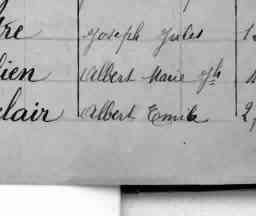 re Joseph Jules 1
lien Albert Marie Jh
lair Albert Emile 2